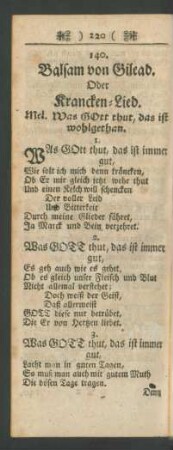 ) 120 (
140.
Balsam von Gilead.
Oder
Krancken-Lied.
Mel. Was GOtt thut, das ist
wohlgethan.
1.
WAs GOtt thut, das ist immer
gut,
Wie solt ich mich denn kräncken,
Ob Er mir gleich jetzt wehe thut
Und einen Kelch will schencken
Der voller Leid
Und Bitterkeit
Durch meine Glieder fähret,
Ja Marck und Bein verzehret.
2.
Was GOTT thut, das ist immer
gut,
Es geh auch wie es gehet,
Ob es gleich unser Fleisch und Blut
Nicht allemal verstehet;
Doch weiß der Geist,
Daß allermeist
GOTT diese nur betrübet,
Die Er von Hertzen liebet.
3.
Was GOTT thut, das ist immer
gut,
Lacht man in guten Tagen,
So muß man auch mit gutem Muth
Die bösen Tage tragen.
Denn